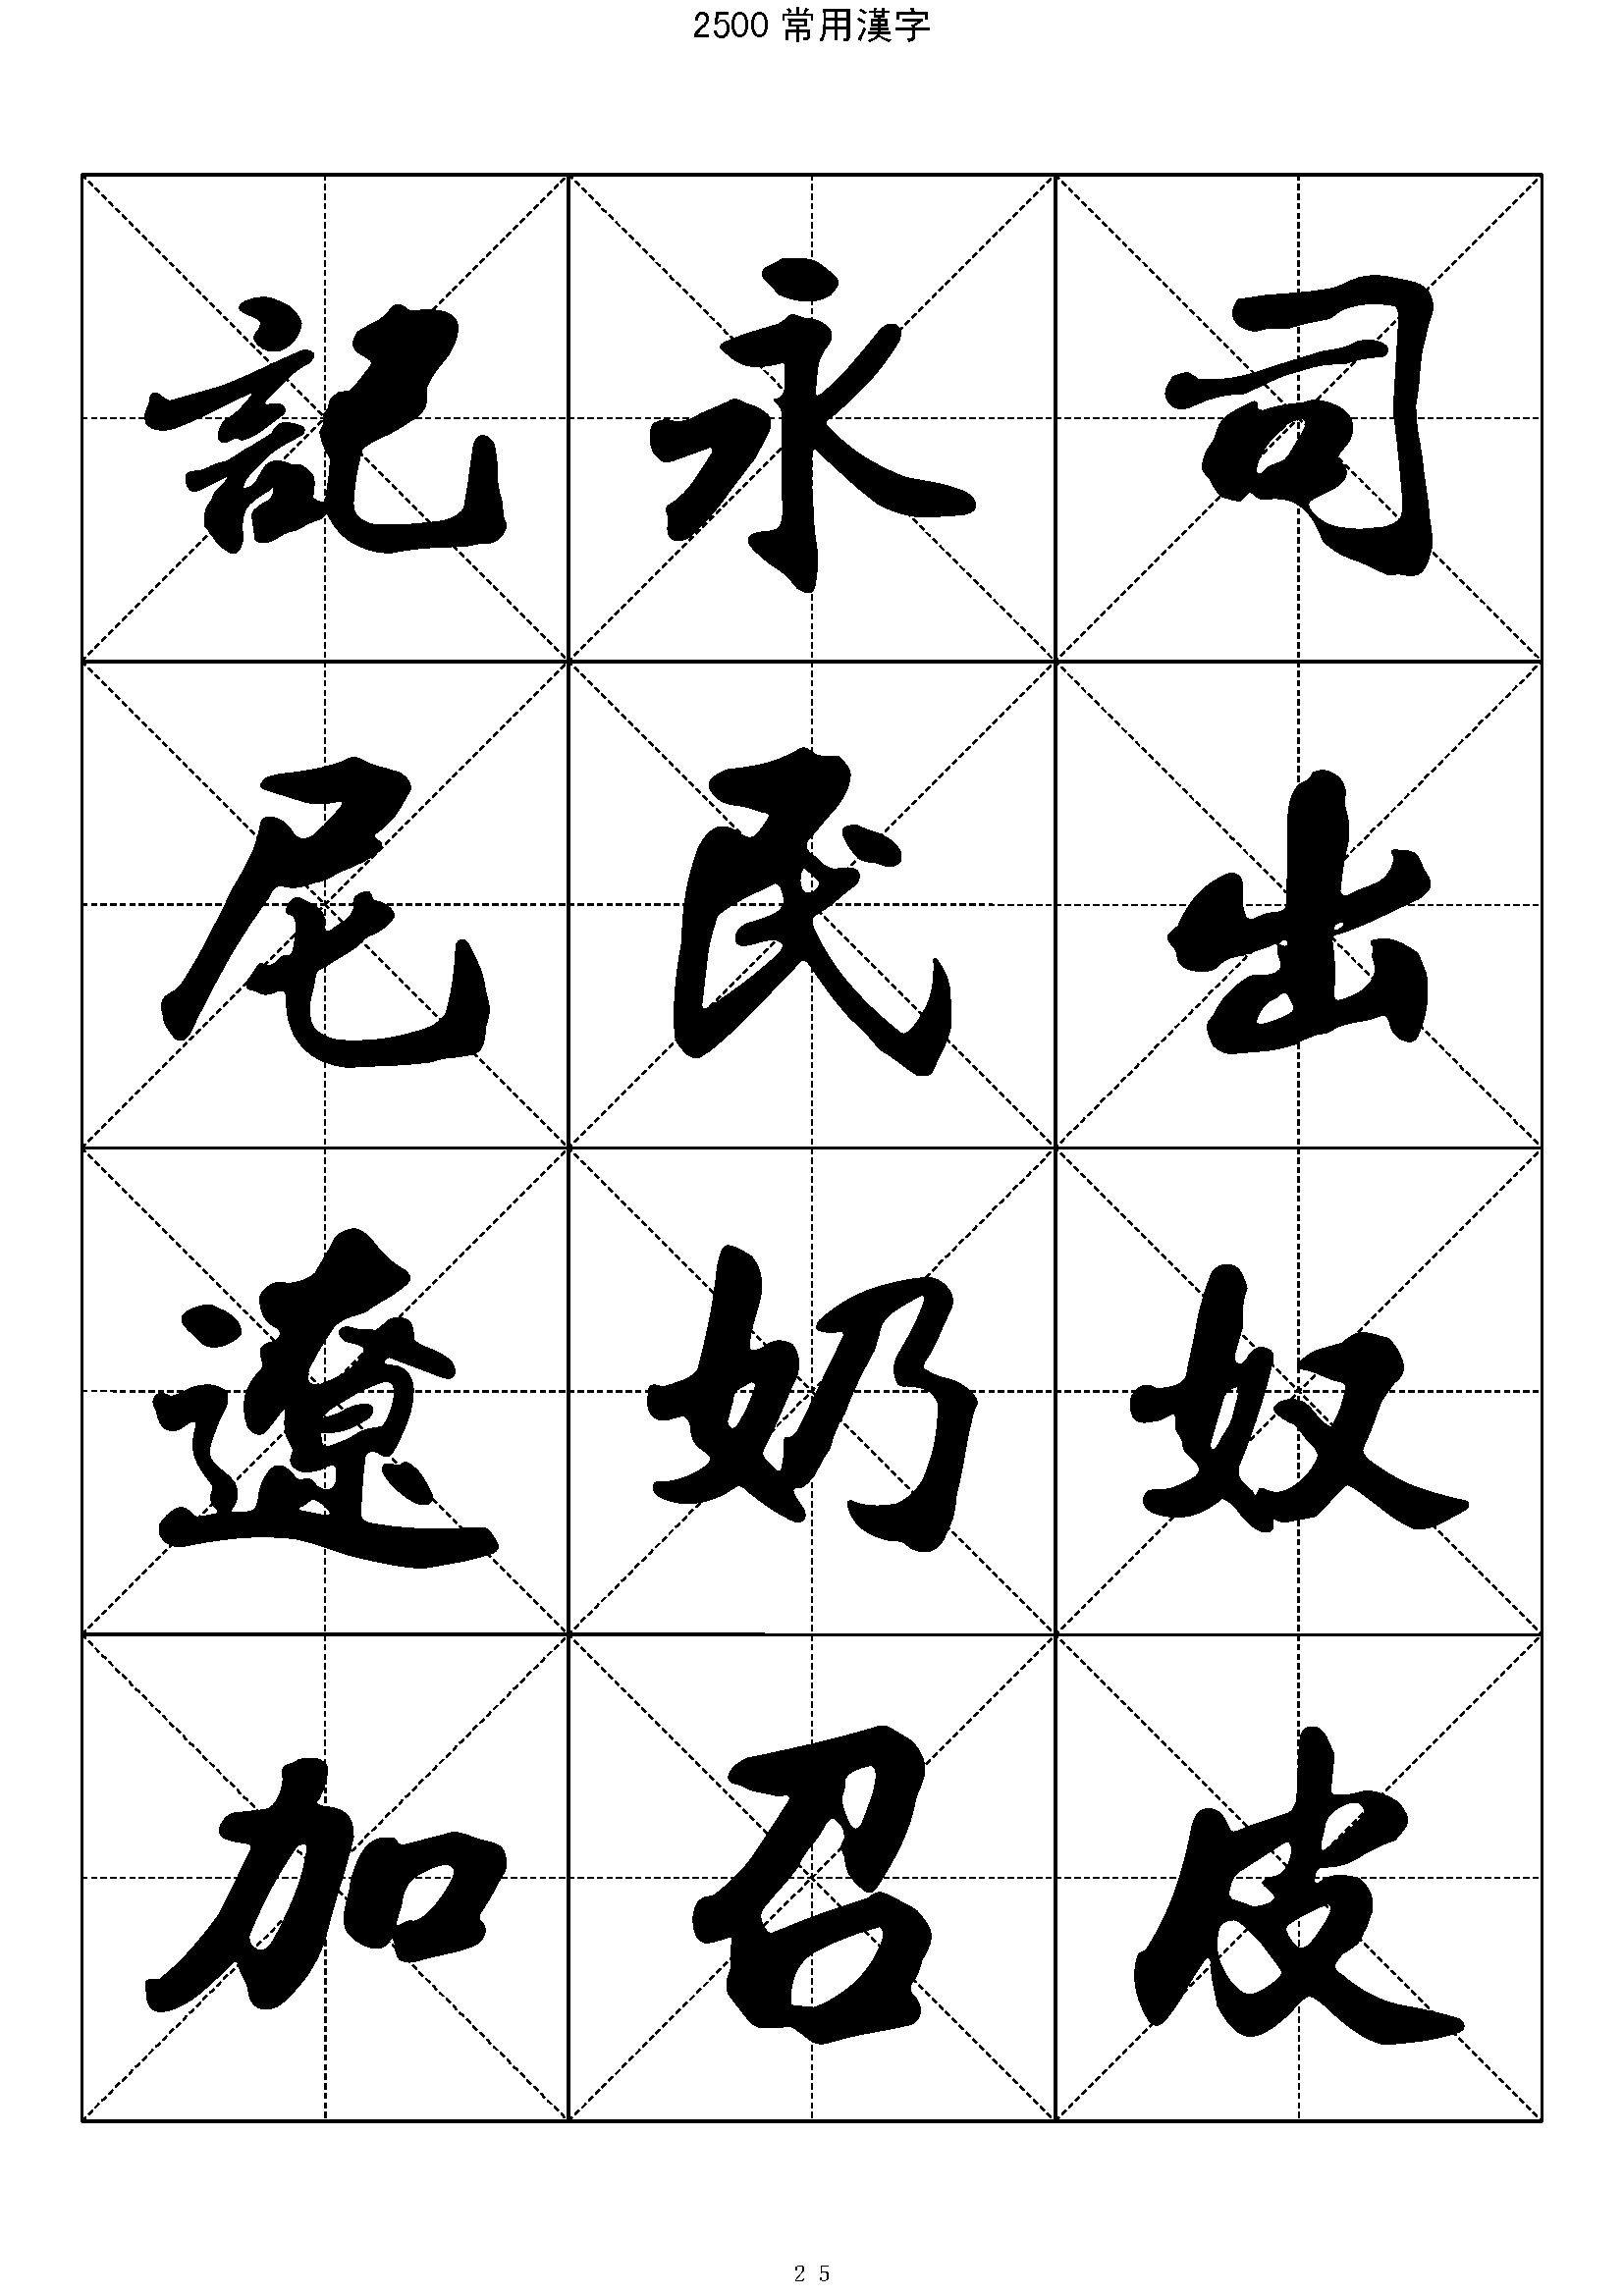 2500常用漢字
記永司
尼民出
遼奶奴
加召皮
25